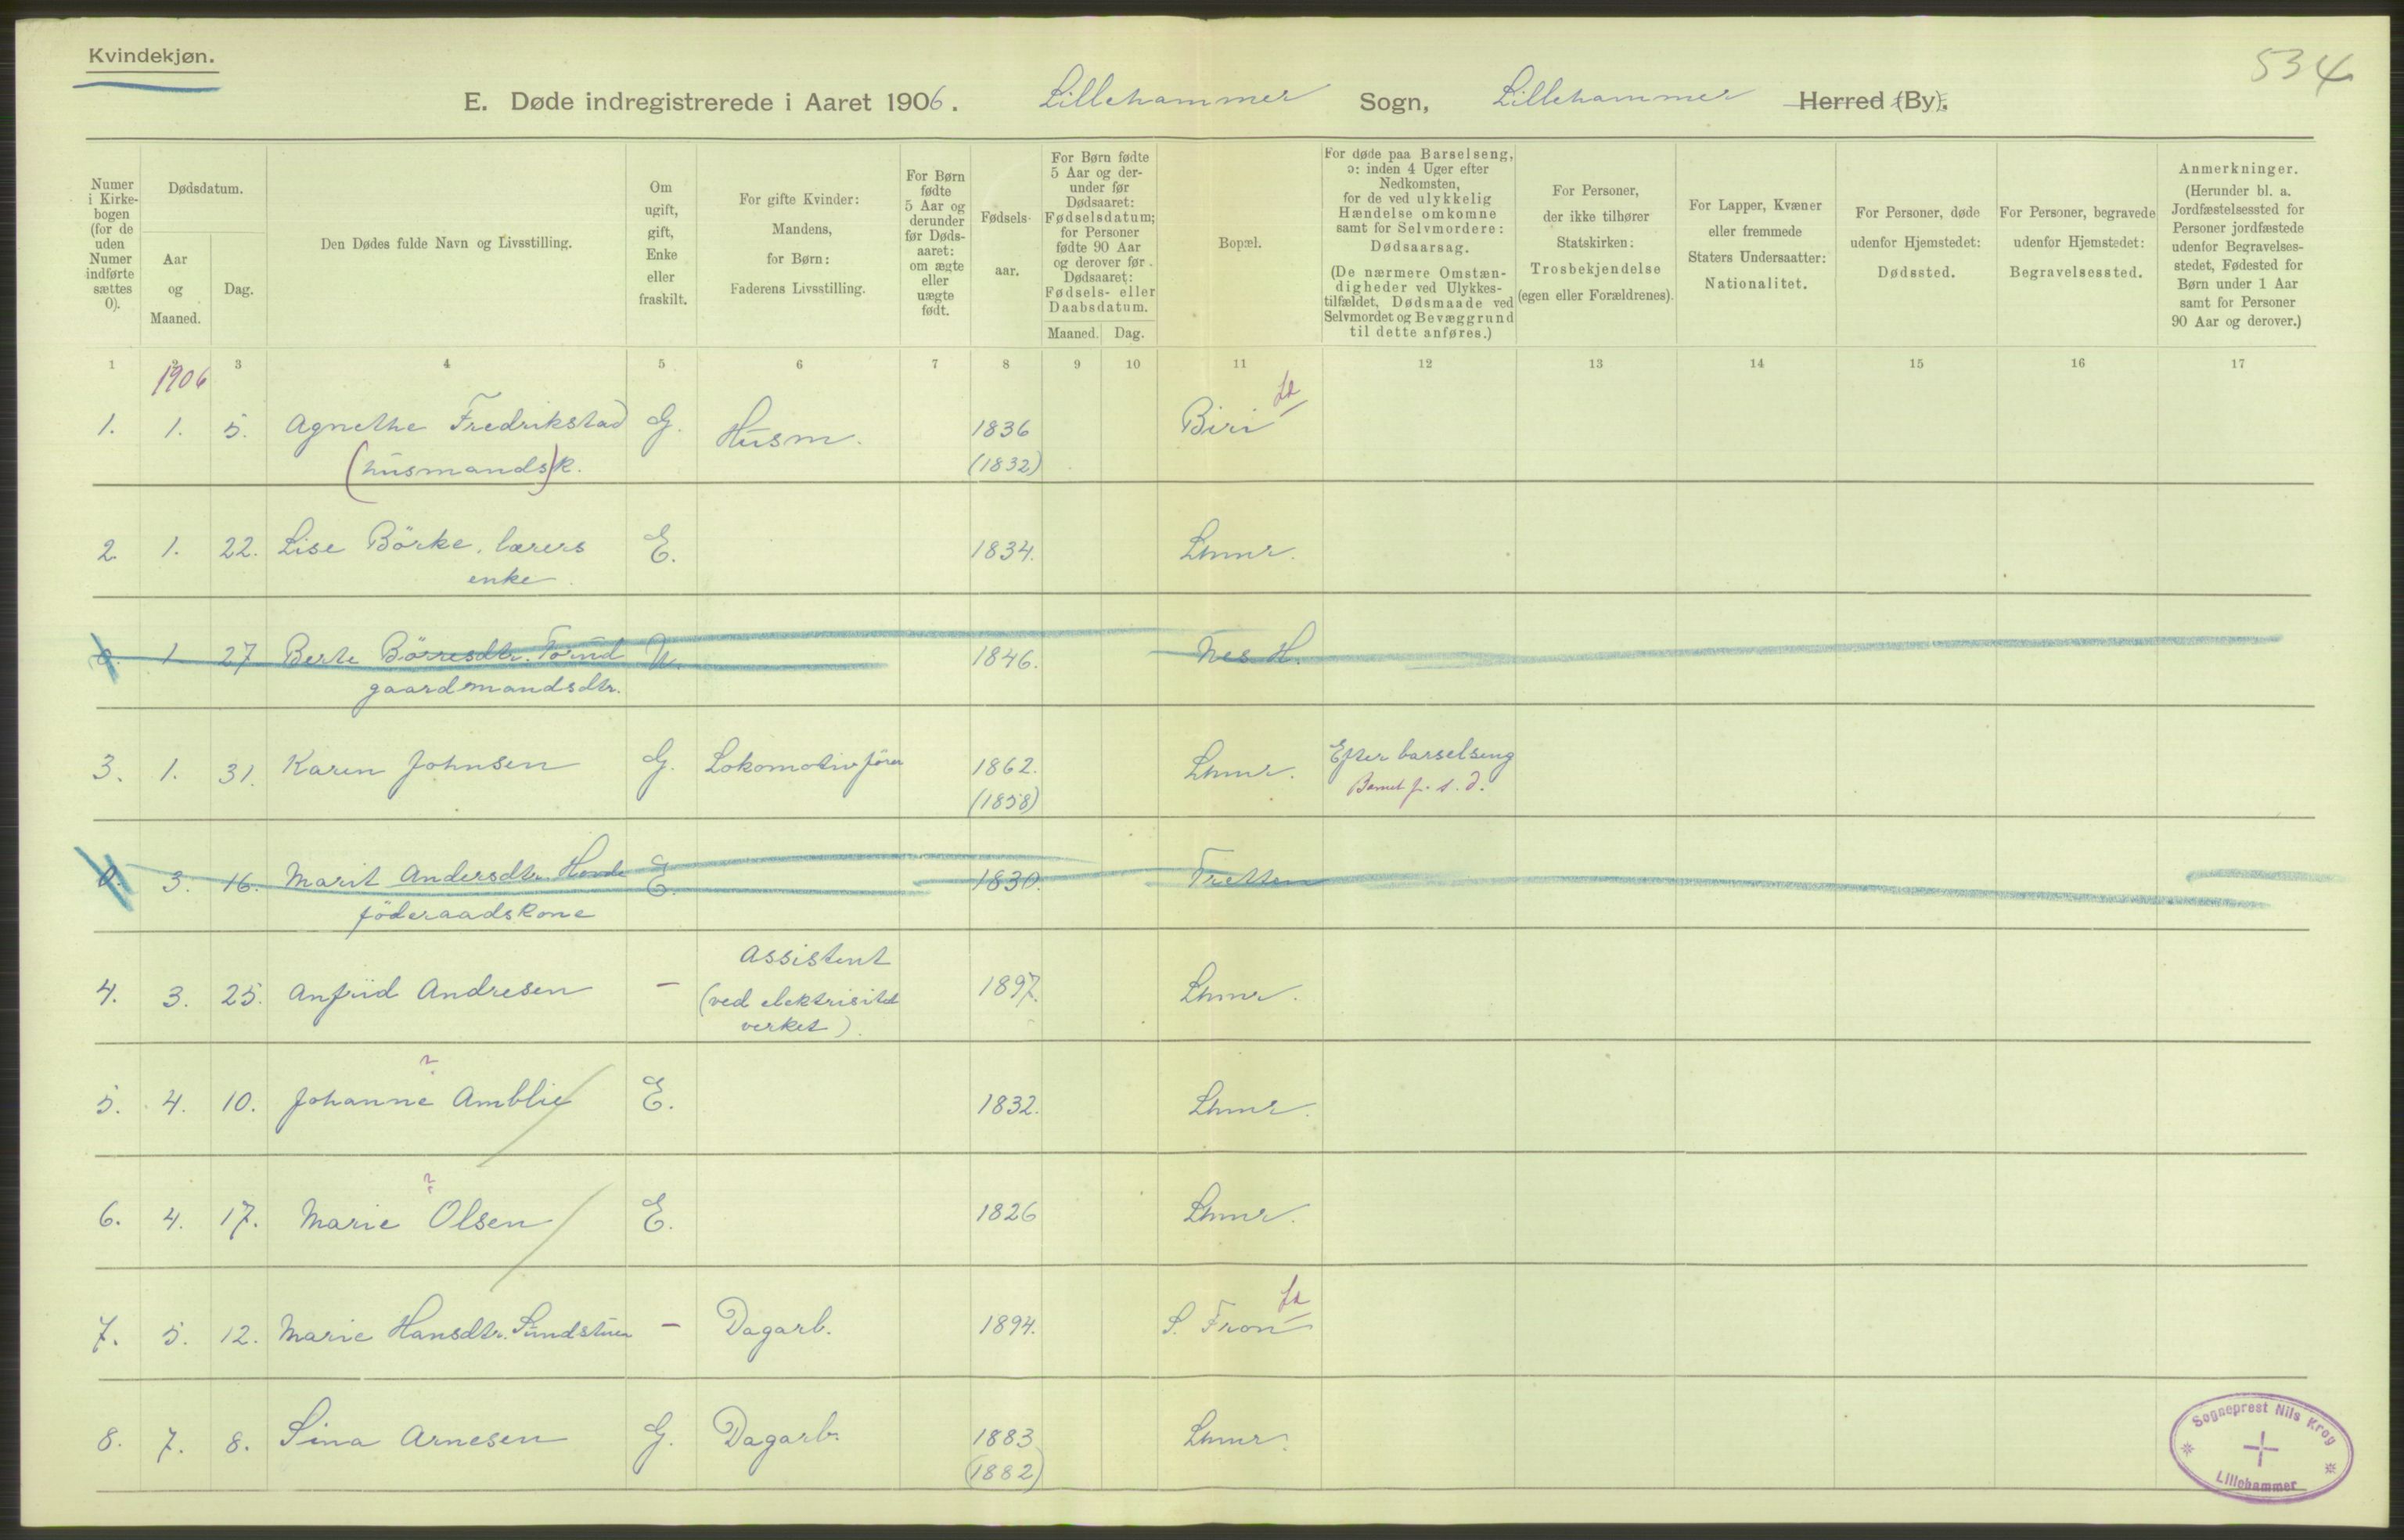 Kvindekjøn.
534
E. Døde indregistrerede i Aaret 1906. Lillehammer Sogn, Lillehammer Herred (By).
Numer i Kirke-bogen (for de uden Numer indførte sættes 0).
Dødsdatum.
Aar og Maaned.
Dag.
Den Dødes fulde Navn og Livsstilling.
Om ugift, gift, Enke eller fraskilt.
For gifte Kvinder: Mandens, for Børn: Faderens Livsstilling.
For Børn fødte 5 Aar og derunder før Døds-aaret: om ægte eller uægte født.
Fødsels-aar.
For Børn fødte 5 Aar og der-under før Dødsaaret: Fødselsdatum; for Personer fødte 90 Aar og derover før Dødsaaret: Fødsels- eller Daabsdatum.
Maaned. Dag.
Bopæl.
For døde paa Barselseng, ɔ: inden 4 Uger efter Nedkomsten, for de ved ulykkelig Hændelse omkomne samt for Selvmordere: Dødsaarsag.
(De nærmere Omstæn-digheder ved Ulykkes-tilfældet, Dødsmaade ved Selvmordet og Bevæggrund til dette anføres.)
For Personer, der ikke tilhører Statskirken: Trosbekjendelse (egen eller Forældrenes).
For Lapper, Kvæner eller fremmede Staters Undersaatter: Nationalitet.
For Personer, døde udenfor Hjemstedet: Dødssted.
For Personer, begravede udenfor Hjemstedet: Begravelsessted.
Anmerkninger.
(Herunder bl. a. Jordfæstelsessted for Personer jordfæstede udenfor Begravelses-stedet, Fødested for Børn under 1 Aar samt for Personer 90 Aar og derover.)
1 2 3 4 5 6 7 8 9 10 11 12 13 14 15 16 17
1906
1. 1. 5. Agnethe Fredrikstad G. Husm. 1836 Biri
(husmands)k. (1832)
2 1. 22. Lise Börke, lærers E. 1834. Lhmr.
enke
0. 1 27 Berte Börresdtr. Forud U. 1846. Nes H.
gaardmandsdtr.
3. 1. 31. Karen Johnsen G. Lokomotivfører 1862. Lhmr. Efter barselseng
(1858) Barnet f. s. d.
0. 3. 16. Marit Andersdtr. Honde E. 1830. Tretten
föderaadskone
Assistent
4. 3. 25. Anfrid Andresen – (ved elektrisitet 1897. Lhmr.
verket).
?
5. 4. 10. Johanne Amblie E. 1832. Lhmr.
?
6. 4. 17. Marie Olsen E. 1826 Lhmr.
7. 5. 12. Marie Hansdtr. Sundstuen – Dagarb. 1894. S. Fron
8. 7. 8. Sina Arnesen G. Dagarb. 1883 Lhmr.
(1882)
Sogneprest Nils Krog
Lillehammer